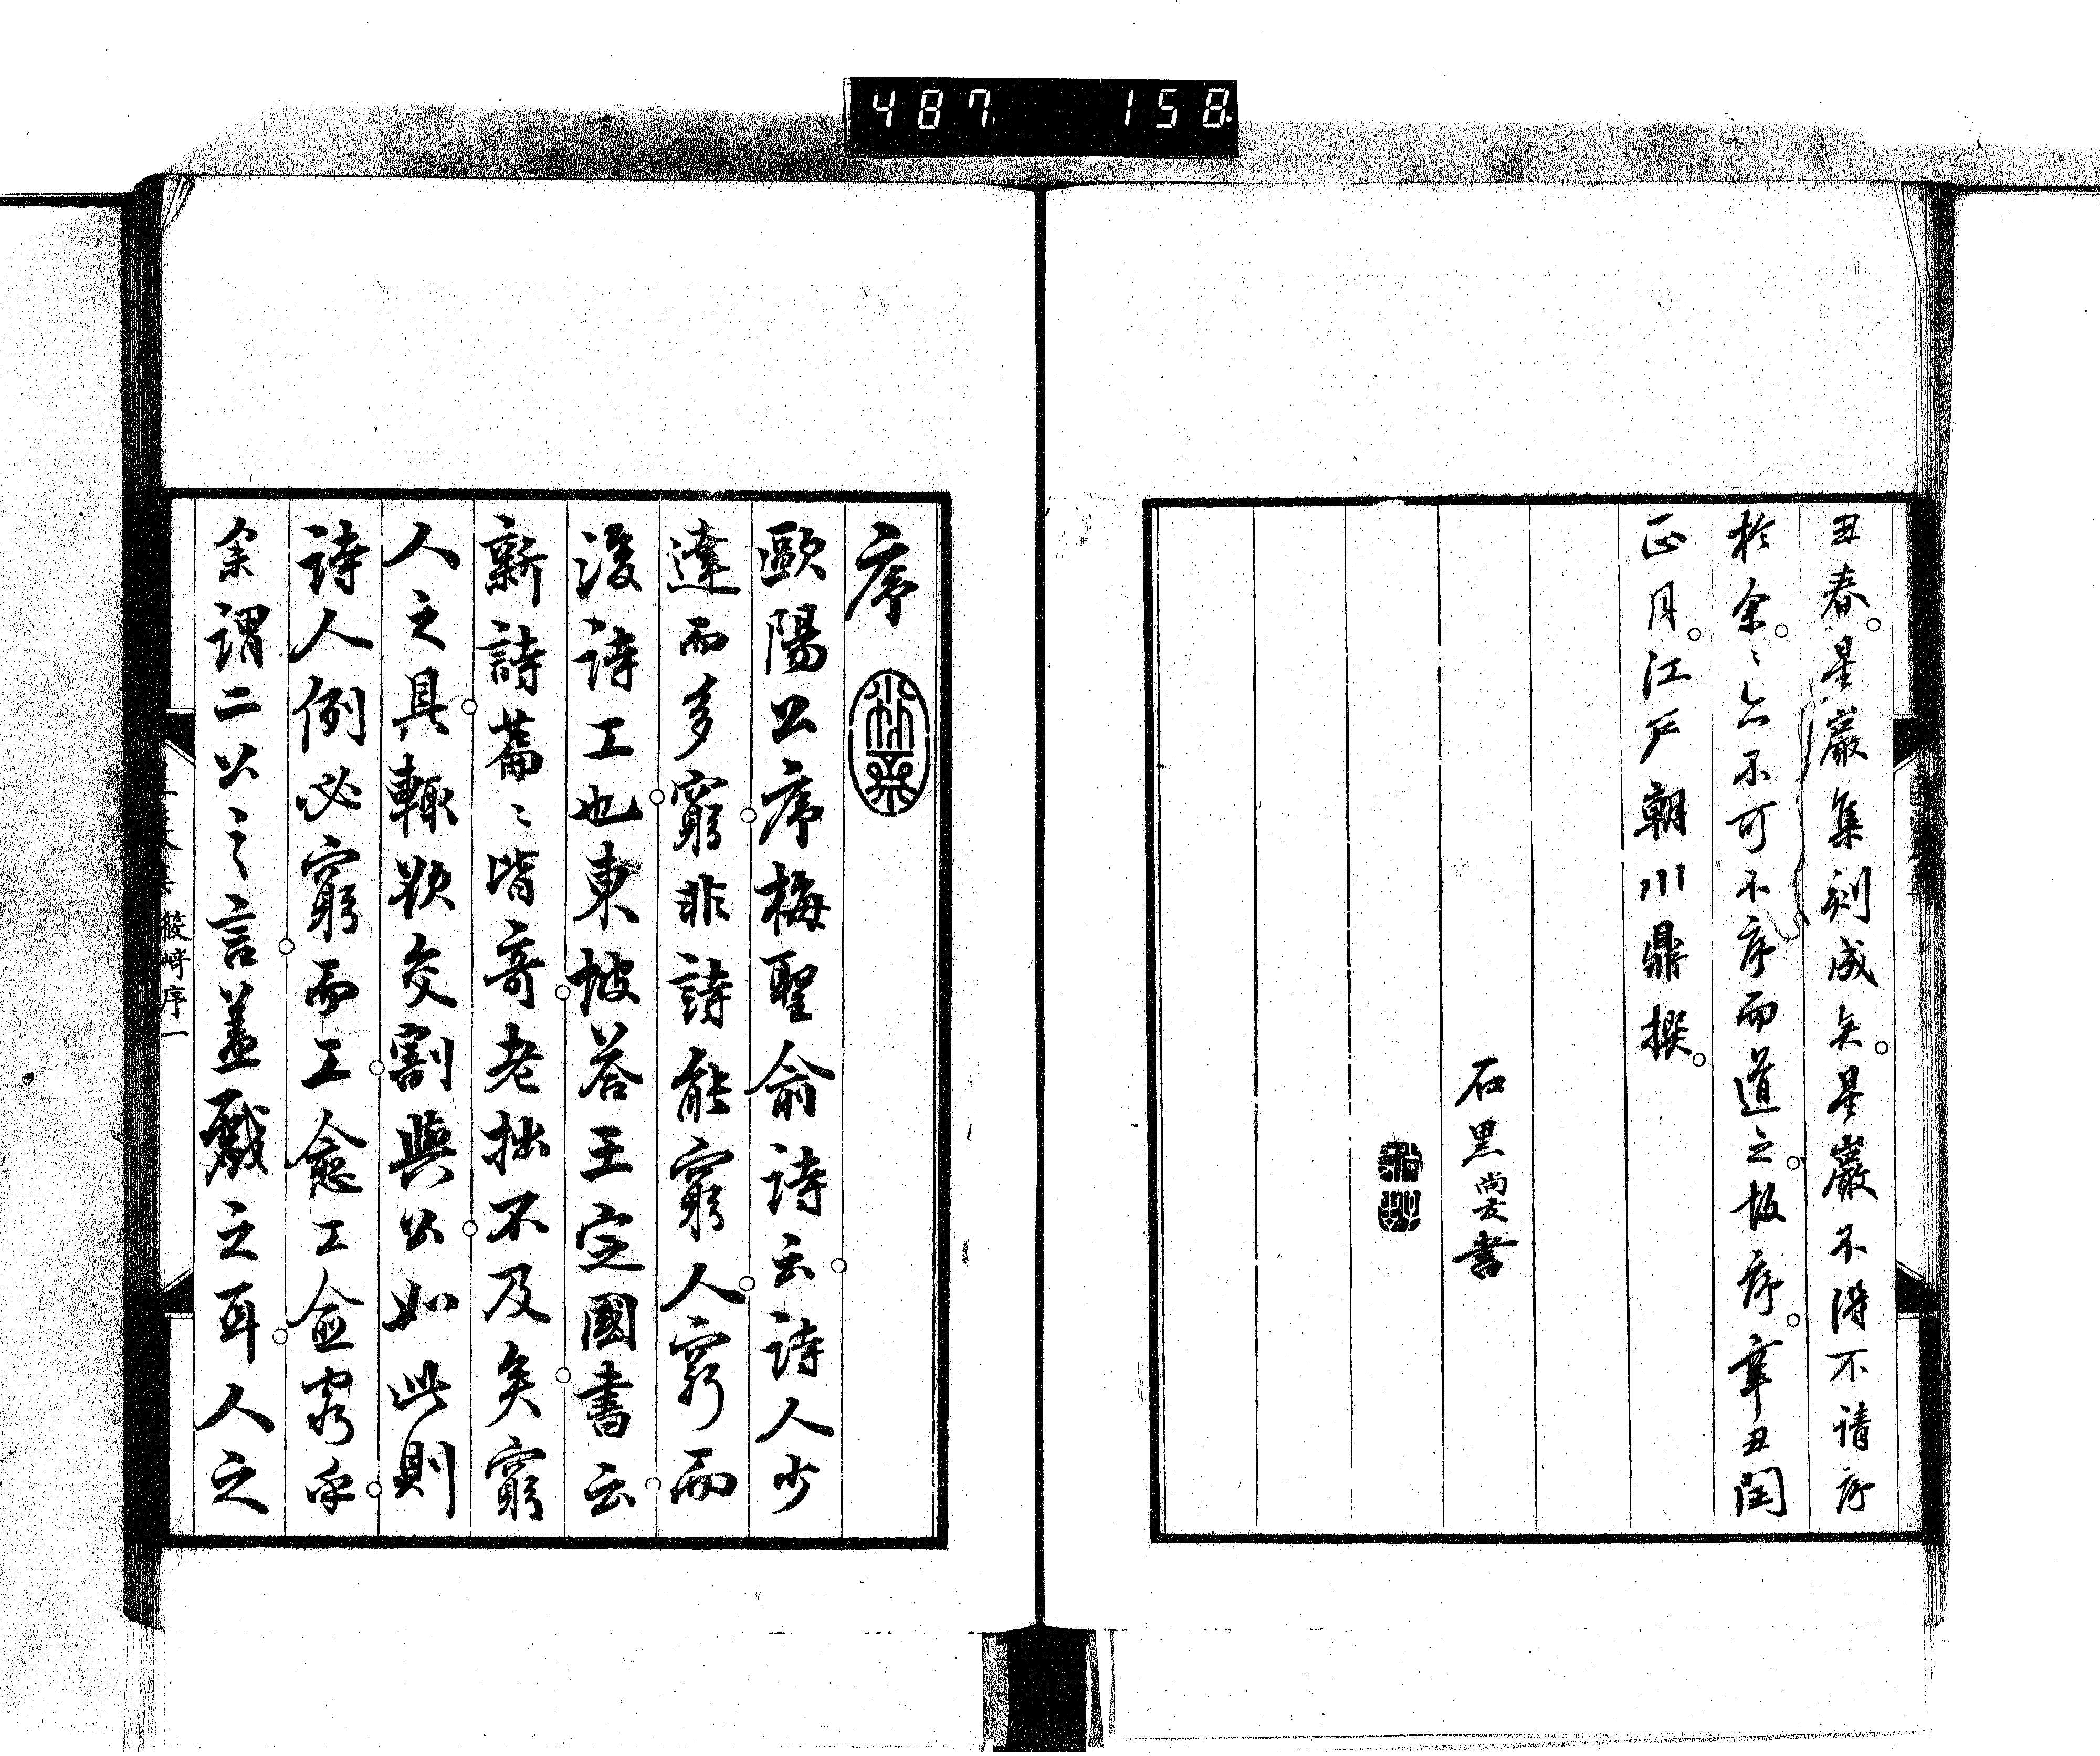 487 158
丑春星巖集刻成矣星巖不得不請序
於余〻亦不可不序而道之故序辛丑閏
正月江戸朝川鼎撰
石黒尚友書
序
歐陽公序梅聖俞詩云詩人少
達而多窮非詩能窮人窮而
後詩工也東坡答王定國書云
新詩篇〻皆奇老拙不及矣窮
人之具輙欲交割與公如此則
詩人例必窮而工愈工愈窮乎
余謂二公之言蓋戲之耳人之
序一